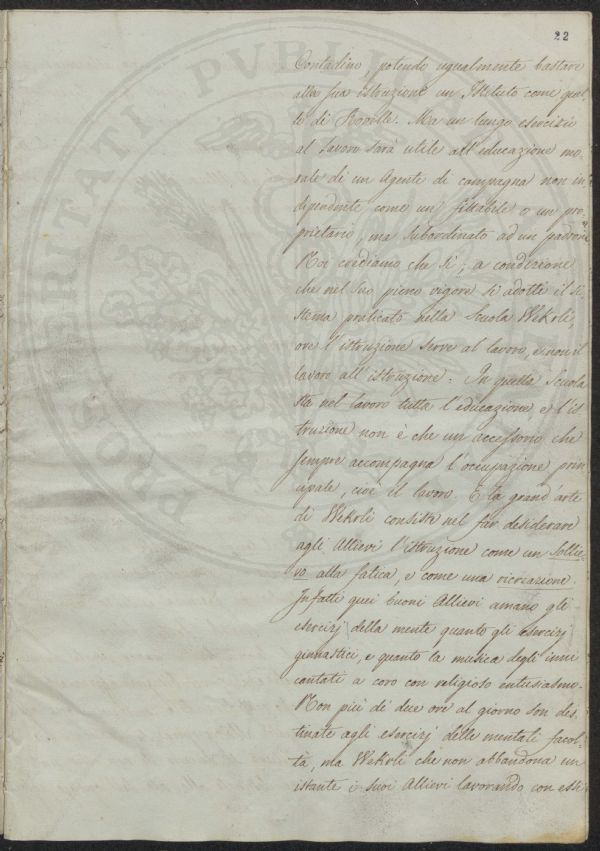 22
Contadino, potendo ugualmente bastare
alla sua istruzione un Istituto come quel-
lo di Roville. Ma un lungo esercizio
al lavoro sarà utile all'educazione mo-
rale di un Agente di campagna non in-
dipendente come un fittabile o un pro-
prietario, ma subordinato ad un padrone?
Noi crediamo che sì; a condizione
che nel suo pieno vigore si adotti il si-
stema praticato nella Scuola Wekrli,
ove l'istruzione serve al lavoro, e non il
lavoro all'istruzione. In quella Scuola
sta nel lavoro tutta l'educazione e l'is
truzione non è che un accessorio che
sempre accompagna l'occupazione prin
cipale, cioè il lavoro. E la grand'arte
di Wekrli consiste nel far desiderare
agli Allievi l'istruzione come un sollie-
vo alla fatica, e come una ricreazione.
Infatti quei buoni Allievi amano gli
esercizj della mente quanto gli esercizj
ginnastici, e quanto la musica degli inni
cantati a coro con religioso entusiasmo.
Non più di due ore al giorno son des-
tinate agli esercizj delle mentali facol-
tà, ma Wekrli che non abbandona un
istante i suoi Allievi lavorando con essi
PROSPERITATI PVBLICAE